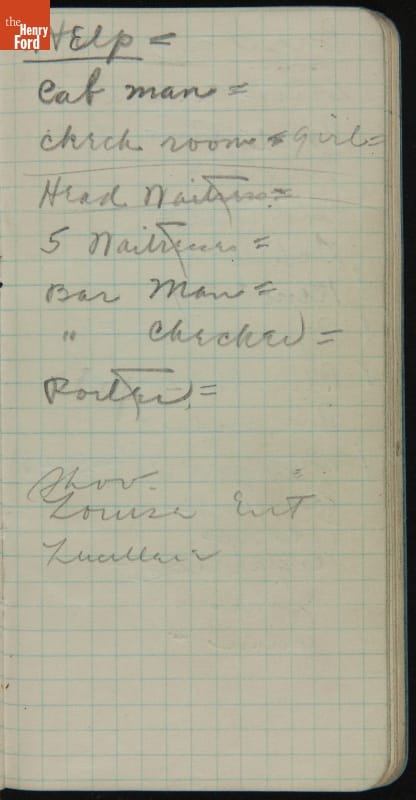 the
Henry
Ford
Help =
Cab man =
check room = girl =
Head Waitress =
5 Waitresses =
Bar Man =
" checker =
Porter =
Show =
Louise Ent